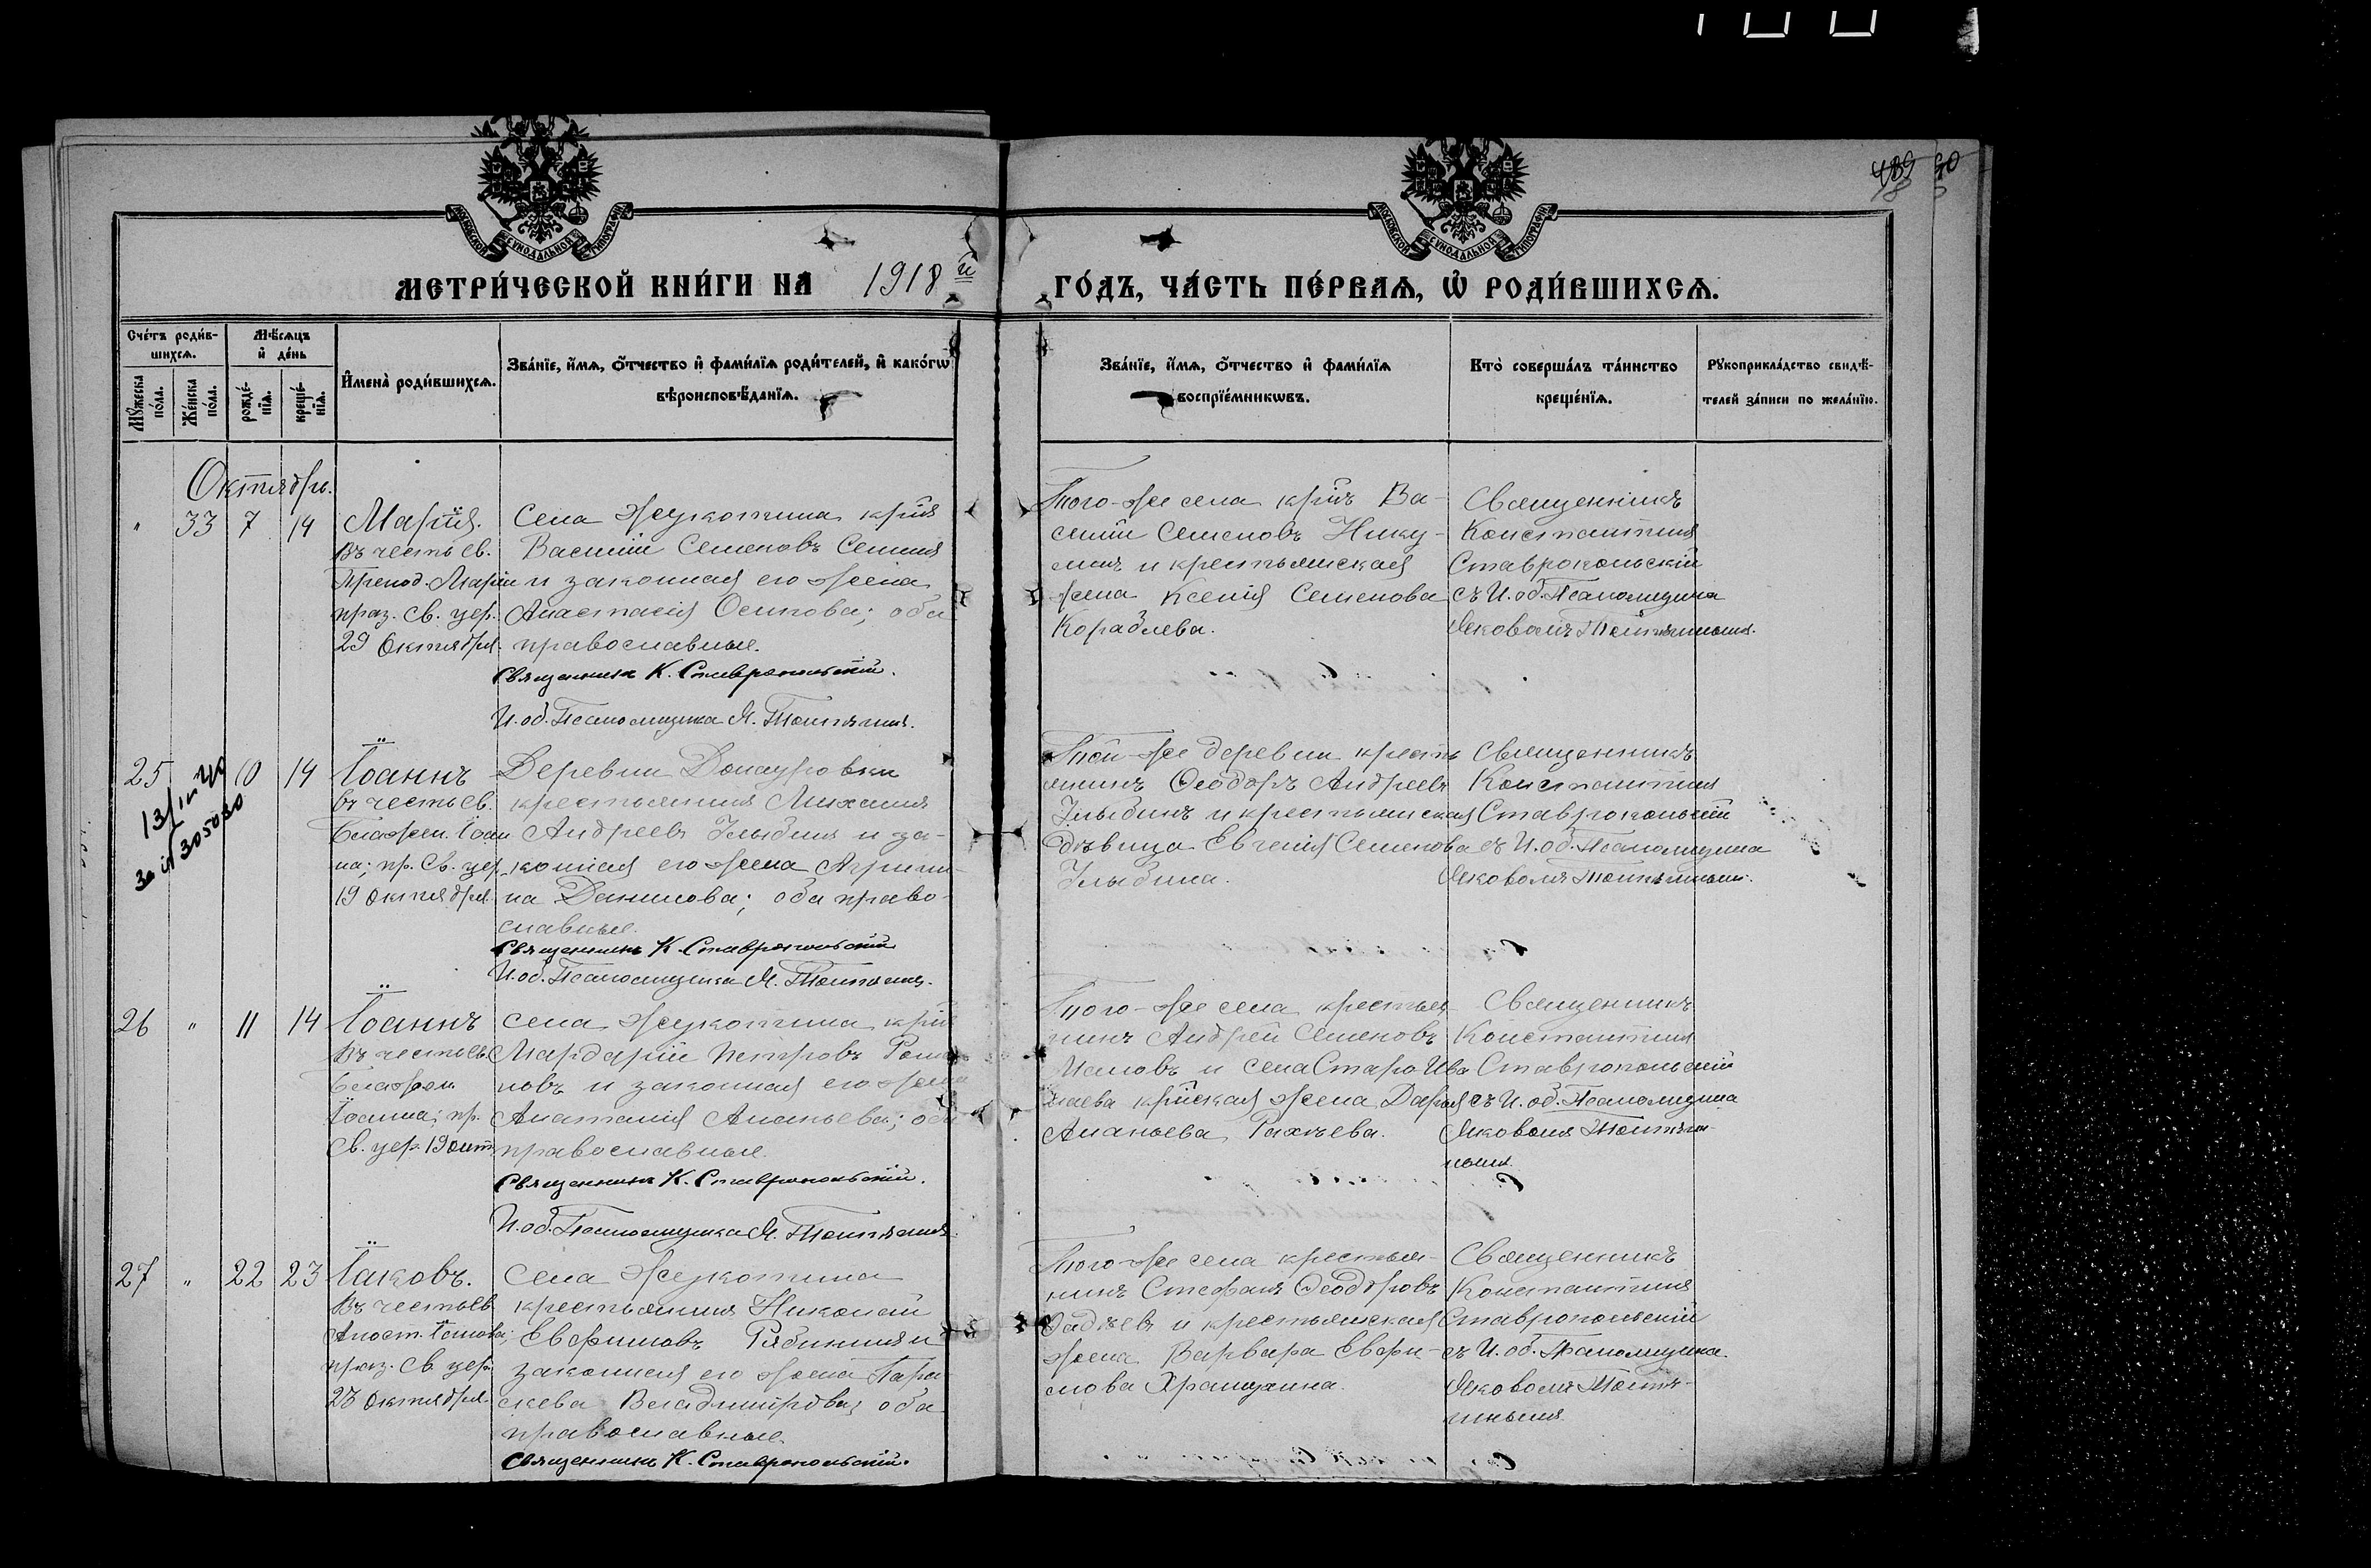 489 90
МОСКОВСКОЙ СУНОДАЛЬНОЙ ТИПОГРАФІИ
МОСКОВСКОЙ СУНОДАЛЬНОЙ ТИПОГРАФІИ
МЕТРИ́ЧЕСКОЙ КНИ́ГИ НА 1918 й
ГО́ДЪ, ЧА́СТЬ ПЕ́РВАѦ, Ѡ РОДИ́ВШИХСѦ.
Сче́тъ роди́в-
шихсѧ.
Мꙋ́жеска по́ла.
Же́нска по́ла.
Мѣ́сѧцъ
и҆ де́нь
рожде́-
нїѧ.
креще́-
нїѧ.
И҆мена̀ роди́вшихсѧ.
Зва́нїе, и҆́мѧ, ѻ҆́тчество и҆ фами́лїѧ роди́телей, и҆ како́гѡ
вѣроисповѣ́данїѧ.
Зва́нїе, и҆́мѧ, ѻ҆́тчество и҆ фами́лїѧ
воспрїе́мникѡвъ.
Кто̀ соверша́лъ та́инство
креще́нїѧ.
Рꙋкоприкла́дство свидѣ́-
телей за́писи по жела́нїю.
Октябрь.
" 33 7 14
Марія.
Въ честь св.
Препод. Маріи
праз. Св. цер.
29 Октября.
Села Жукотина кр-нъ
Василій Семеновъ
и законная его жена
Анастасія Осипова; оба
православные.
Священникъ К. Ставропольскій.
И. об. Псаломщика Я.
Того-же села кр-нъ Ва-
силій Семеновъ Нику-
линъ и крестьянская
жена Ксенія Семенова
Кораблева.
Священникъ
Константинъ
Ставропольскій
съ И. об. Псаломщика
Яковомъ
25 10 14
13/
305080
Іоаннъ
въ честь св.
Блажен. Іоан
на; пр. Св. цер.
19 октября.
Деревни
крестьянинъ Михаилъ
Андреевъ Улыбинъ и за-
конная его жена Агрипи-
на Данилова; оба право-
славные.
Священникъ К. Ставропольскій
И. об. Псаломщика Я.
Той-же деревни кресть
янинъ Ѳеодоръ Андреевъ
Улыбинъ и крестьянская
дѣвица Евгенія Семенова
Улыбина.
Священникъ
Константинъ
Ставропольскій
съ И. об. Псаломщика
Яковомъ
26 " 11 14
Іоаннъ
Въ честь св.
Блажен.
Іоанна; пр.
Св. цер. 19 окт.
Села Жукотина кр-нъ
Мардарій Петровъ Рома
новъ и законная его жена
Анастасія Ананьева; оба
православные.
Священникъ К. Ставропольскій.
И. об. Псаломщика Я.
Того-же села крестья-
нинъ Андрей Семеновъ
и села Старо Ива
наева кр-нская жена Дарья
Ананьева
Священникъ
Константинъ
Ставропольскій
съ И. об. Псаломщика
Яковомъ
27 " 22 23
Іаковъ.
Въ честь св.
Апост. Іакова;
праз. Св. цер.
23 Октября.
Села Жукотина
крестьянинъ Николай
Евфимовъ Рябининъ и
законная его жена Пара
скева Владимірова; оба
православные.
Священникъ К. Ставропольскій.
Того-же села крестья-
нинъ Стефанъ Ѳеодоровъ
и крестьянская
жена Варвара Евфи-
мова
Священникъ
Константинъ
Ставропольскій
съ И. об. Псаломщика
Яковомъ